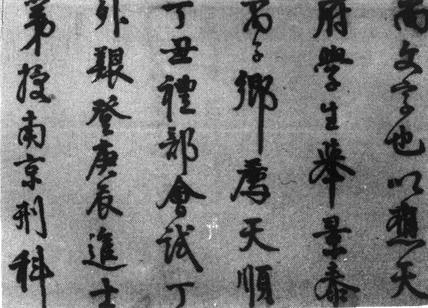 尚文字也以應天
府學生舉景泰
丙子鄉薦天順
丁丑禮部會試丁
外艱登庚辰進士
第授南京刑科